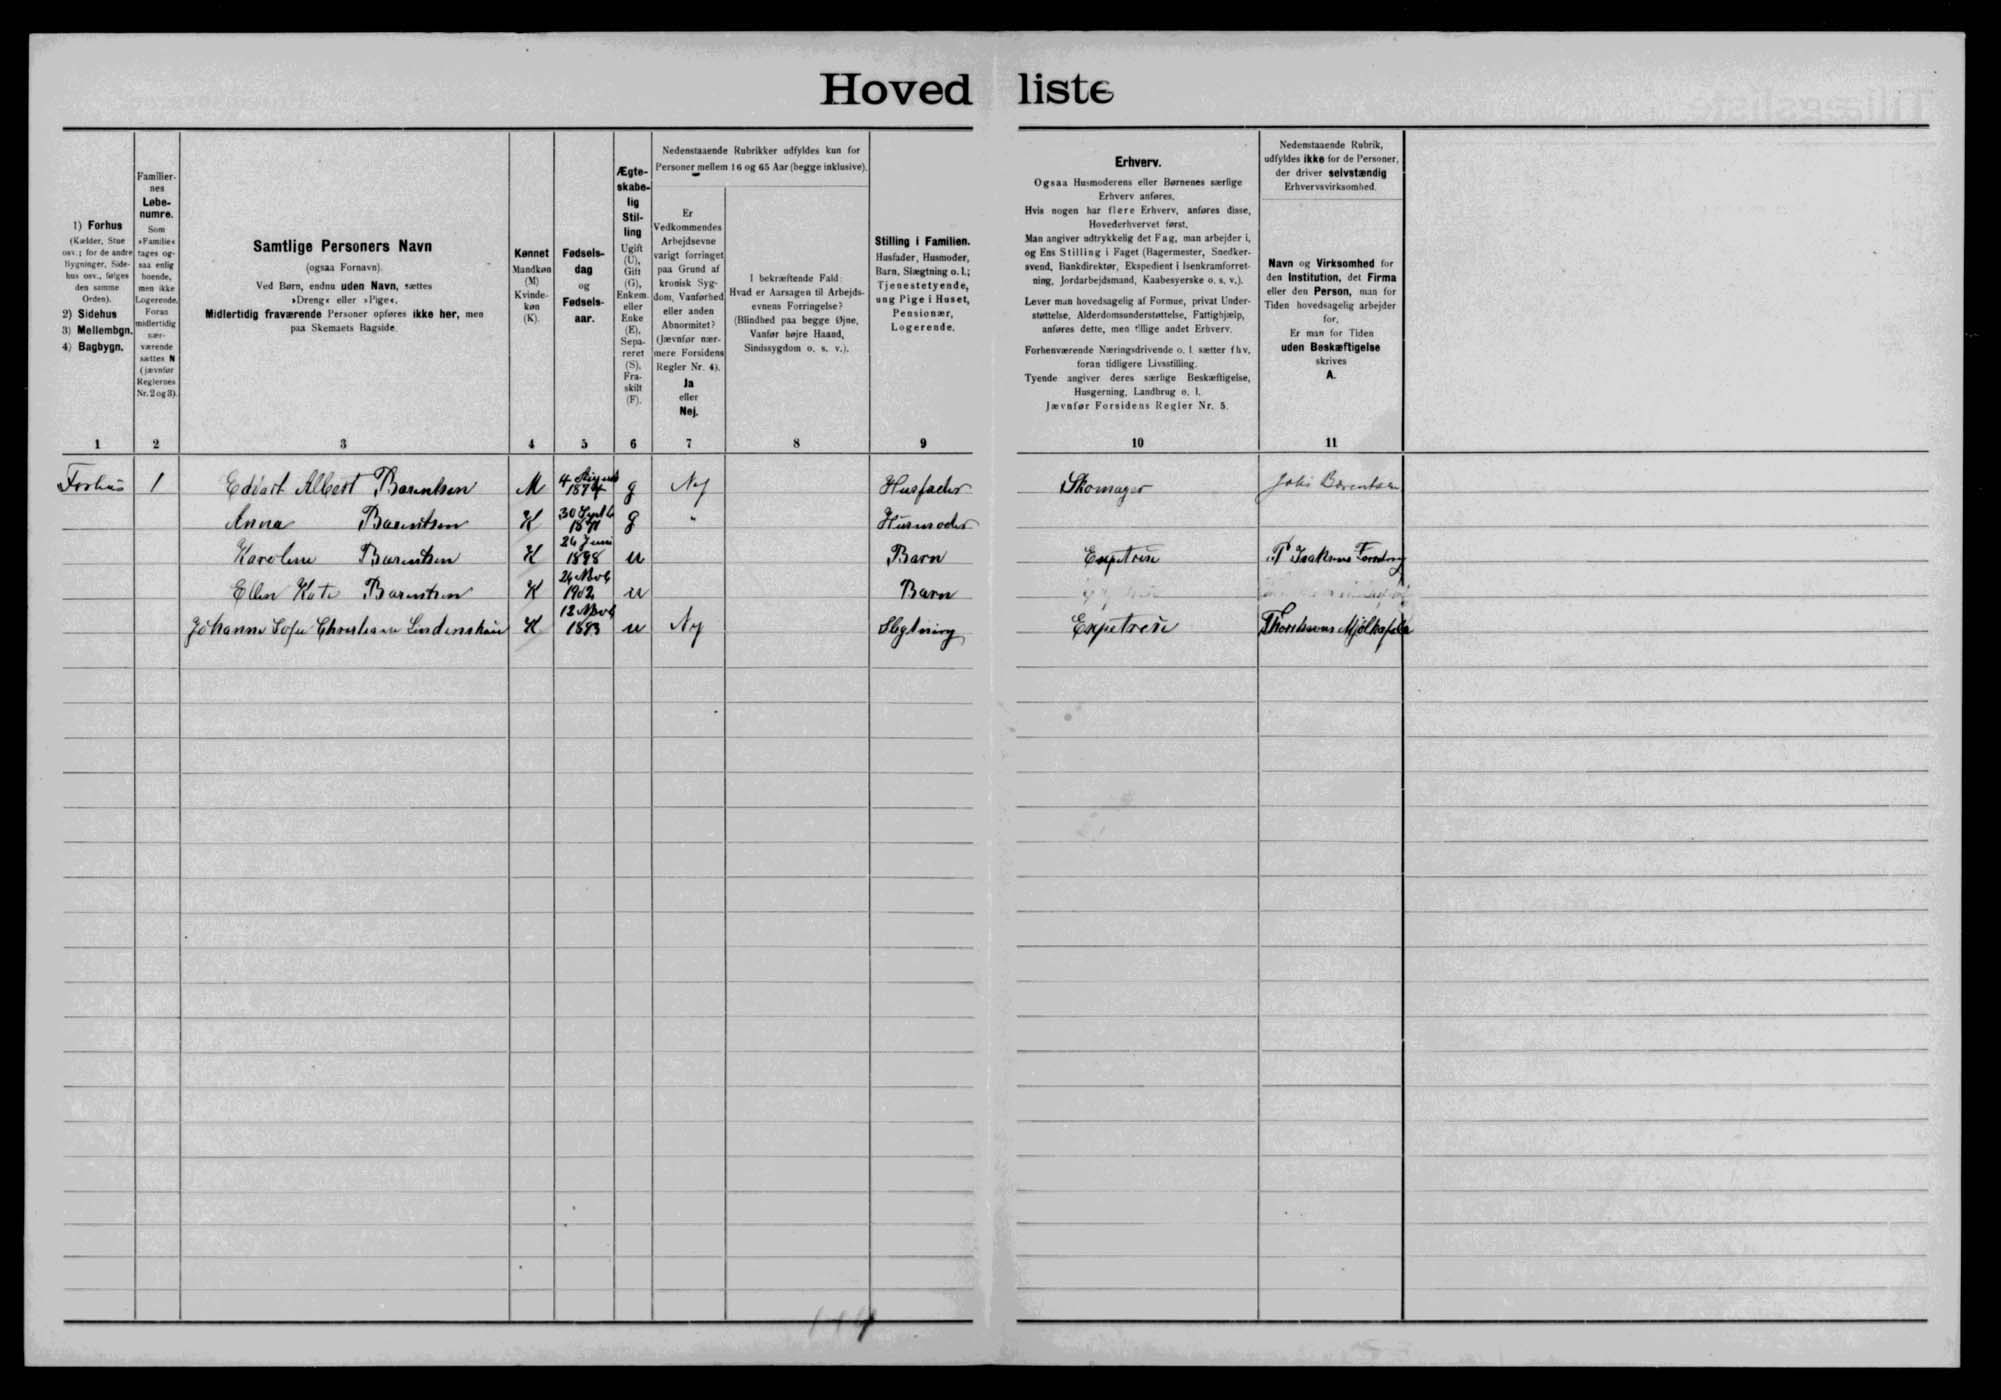 Hoved liste
1) Forhus
(Kælder, Stue
osv.; for de andre
Bygninger, Side-
hus osv., følges
den samme
Orden).
2) Sidehus
3) Mellembgn.
4) Bagbygn.
Familier-
nes
Løbe-
numre.
Som
»Familie«
tages og-
saa enlig
boende,
men ikke
Logerende.
Foran
midlertidig
nær-
værende
sættes N
(jævnfør
Reglernes
Nr. 2 og 3).
Samtlige Personers Navn
(ogsaa Fornavn).
Ved Børn, endnu uden Navn, sættes
»Dreng« eller »Pige«.
Midlertidig fraværende Personer opføres ikke her, men
paa Skemaets Bagside.
Kønnet
Mandkøn
(M)
Kvinde-
køn
(K).
Fødsels-
dag
og
Fødsels-
aar.
Ægte-
skabe-
lig
Stil-
ling
Ugift
(U),
Gift
(G),
Enkem.
eller
Enke
(E),
Sepa-
reret
(S),
Fra-
skilt
(F).
Nedenstaaende Rubrikker udfyldes kun for
Personer mellem 16 og 65 Aar (begge inklusive).
Er
Vedkommendes
Arbejdsevne
varigt forringet
paa Grund af
kronisk Syg-
dom, Vanførhed
eller anden
Abnormitet?
(Jævnfør nær-
mere Forsidens
Regler Nr. 4).
Ja
eller
Nej.
I bekræftende Fald:
Hvad er Aarsagen til Arbejds-
evnens Forringelse?
(Blindhed paa begge Øjne,
Vanfør højre Haand,
Sindssygdom o. s. v.).
Stilling i Familien.
Husfader, Husmoder,
Barn, Slægtning o. l.;
Tjenestetyende,
ung Pige i Huset,
Pensionær,
Logerende.
Erhverv.
Ogsaa Husmoderens eller Børnenes særlige
Erhverv anføres.
Hvis nogen har flere Erhverv, anføres disse,
Hovederhvervet først.
Man angiver udtrykkelig det Fag, man arbejder i,
og Ens Stilling i Faget (Bagermester, Snedker-
svend, Bankdirektør, Ekspedient i Isenkramforret-
ning, Jordarbejdsmand, Kaabesyerske o. s. v.).
Lever man hovedsagelig af Formue, privat Under-
støttelse, Alderdomsunderstøttelse, Fattighjælp,
anføres dette, men tillige andet Erhverv.
Forhenværende Næringsdrivende o. l. sætter fhv.
foran tidligere Livsstilling.
Tyende angiver deres særlige Beskæftigelse,
Husgerning, Landbrug o. l.
Jævnfør Forsidens Regler Nr. 5.
Nedenstaaende Rubrik,
udfyldes ikke for de Personer,
der driver selvstændig
Erhvervsvirksomhed.
Navn og Virksomhed for
den Institution, det Firma
eller den Person, man for
Tiden hovedsagelig arbejder
for.
Er man for Tiden
uden Beskæftigelse
skrives
A.
1 2 3 4 5 6 7 8 9 10 11
Forhus 1 Edvart Albert Barentsen M 4 August 1874 g Nej Husfader Skomager Barentsen
Anna Barentsen K 30 1871 g " Husmoder
Karoline Barentsen K 24 Juni 1898 u Barn
Ellen Kate Barentsen K 24 Novb 1902 u Barn
Johanne Sofie Christiane K 12 Novb 1893 u Nej Slegtning